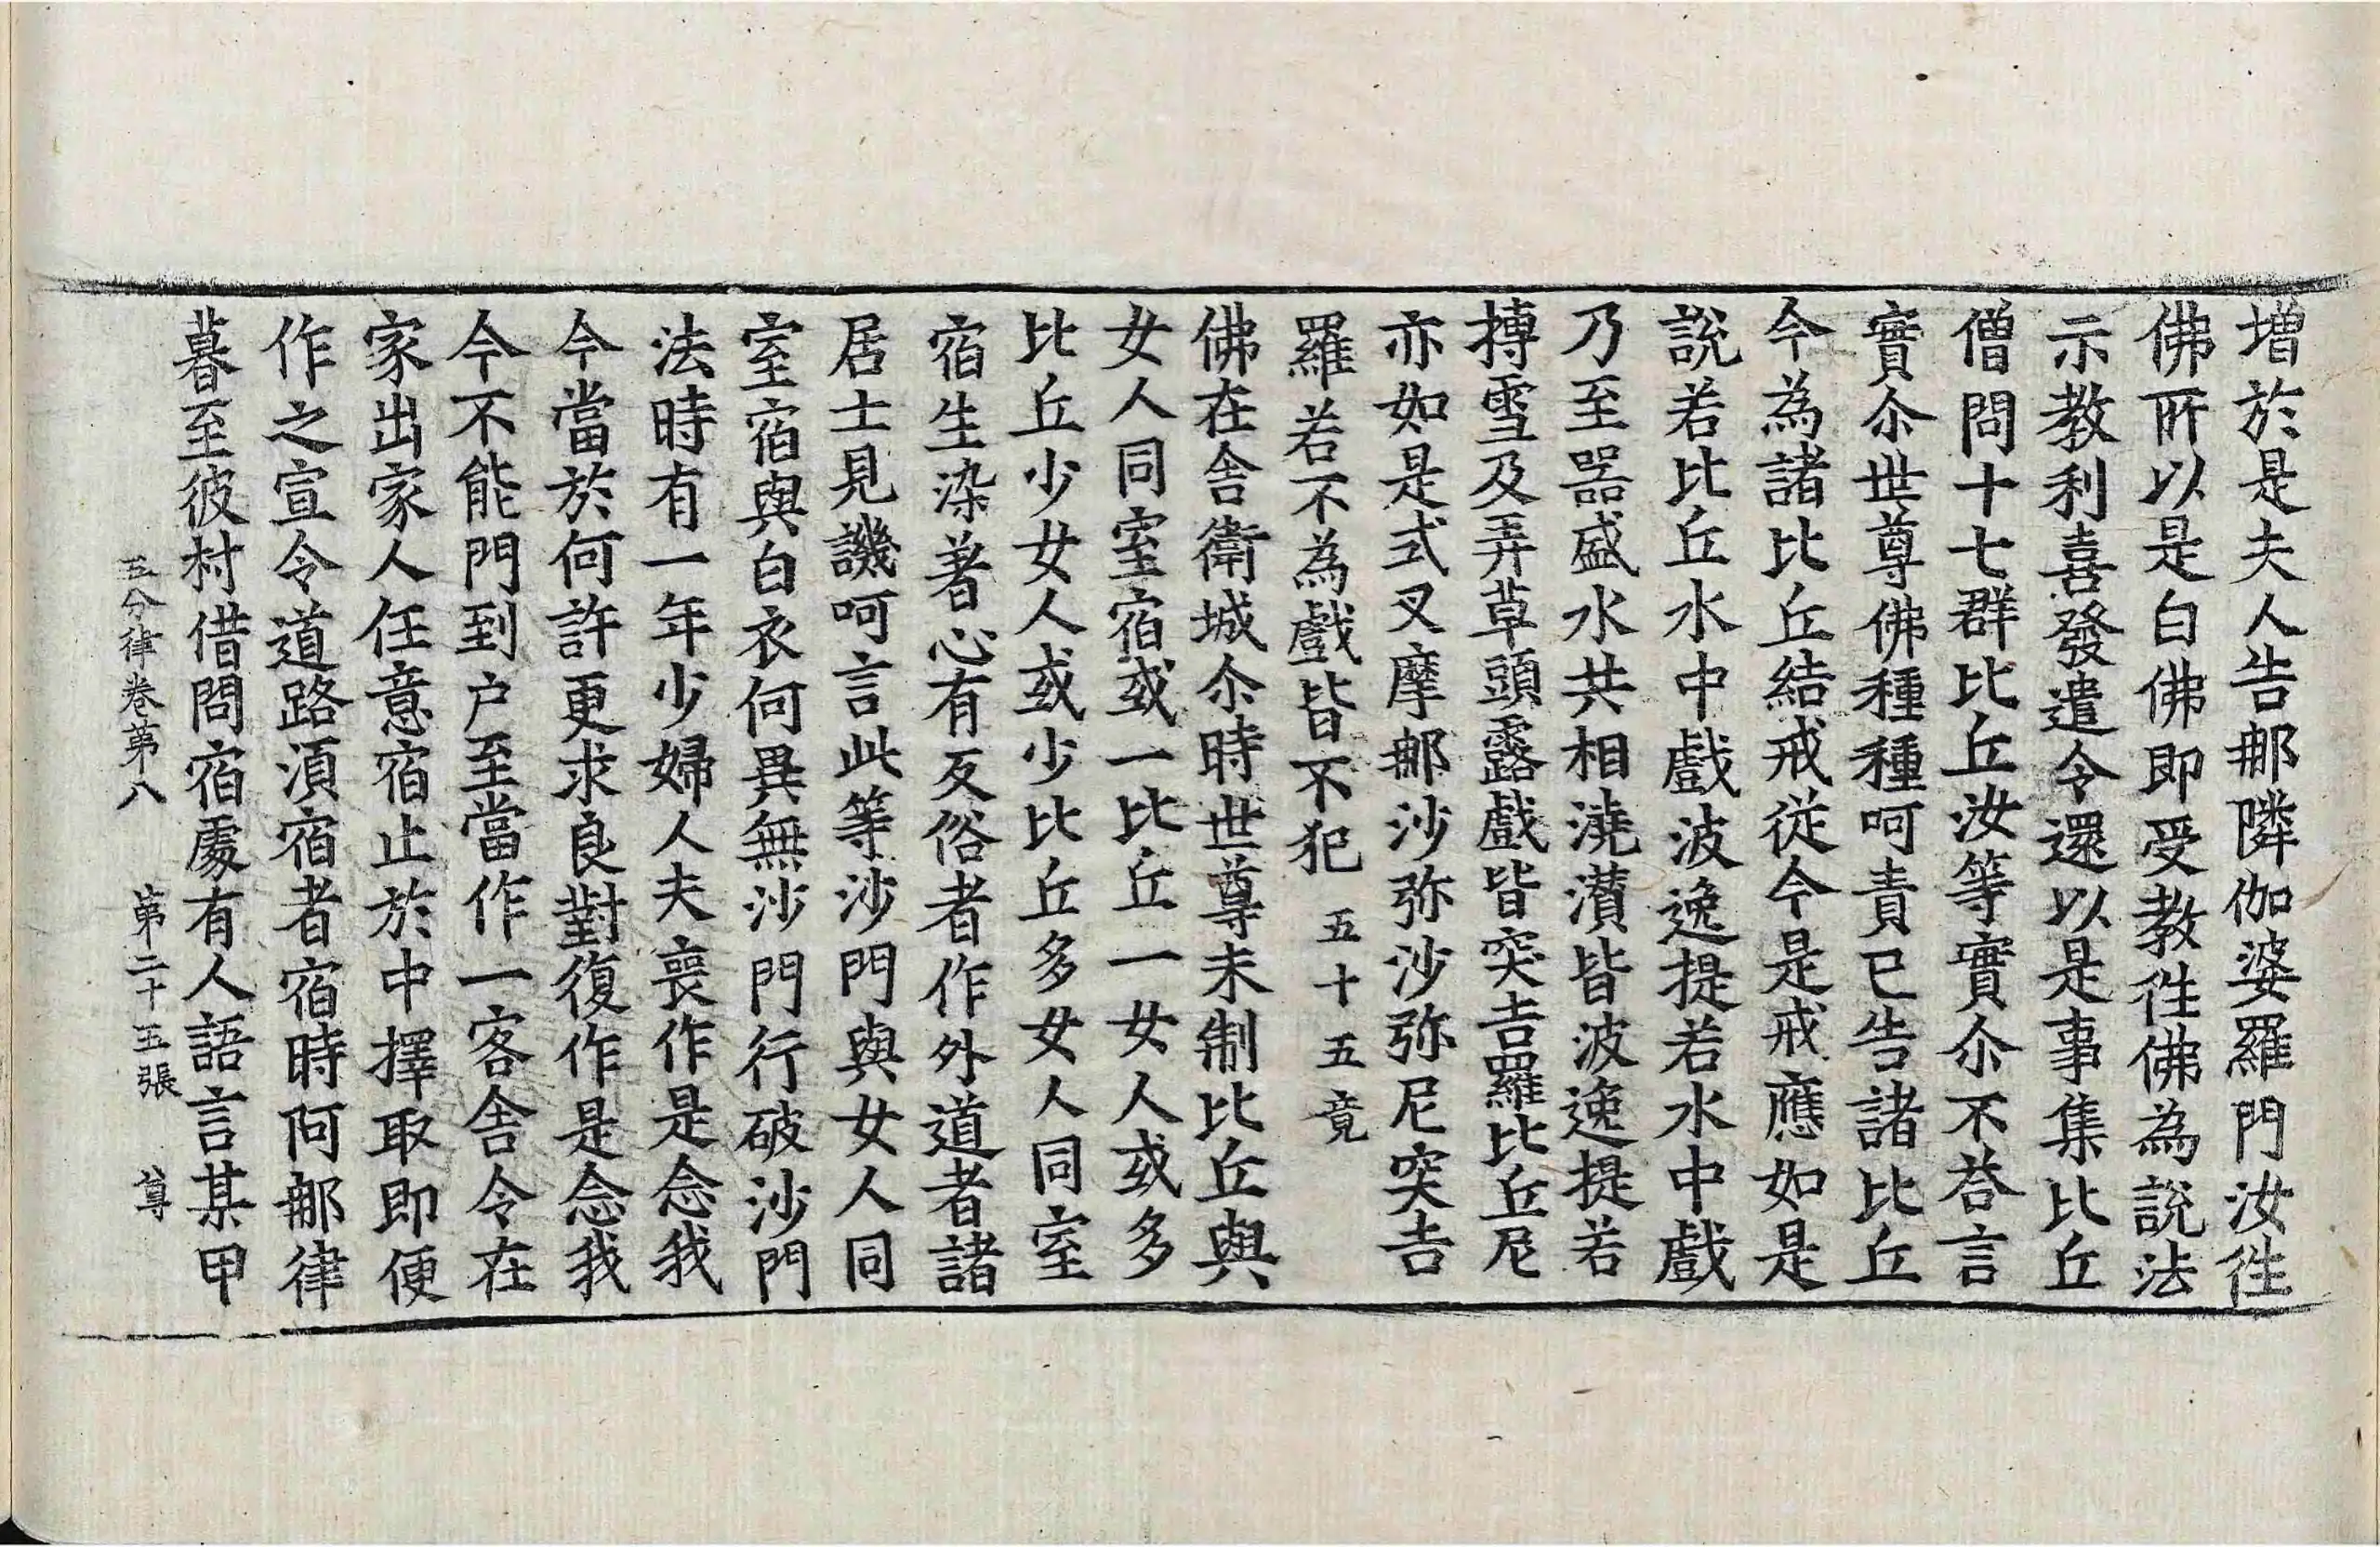 增於是夫人告郍隣伽婆羅門汝徃
佛所以是白佛即受教徃佛為說法
示教利喜發遣令還以是事集比丘
僧問十七群比丘汝等實尒不荅言
實尒世尊佛種種呵責已告諸比丘
今為諸比丘結戒從今是戒應如是
說若比丘水中戲波逸提若水中戲
乃至器盛水共相澆灒皆波逸提若
摶雪及弄草頭露戲皆突吉羅比丘尼
亦如是式叉摩郍沙弥沙弥尼突吉
羅若不為戲皆不犯 五十五竟
佛在舍衛城尒時世尊未制比丘與
女人同室宿或一比丘一女人或多
比丘少女人或少比丘多女人同室
宿生染著心有反俗者作外道者諸
居士見譏呵言此等沙門與女人同
室宿與白衣何異無沙門行破沙門
法時有一年少婦人夫喪作是念我
今當於何許更求良對復作是念我
今不能門到户至當作一客舍令在
家出家人任意宿止於中擇取即便
作之宣令道路湏宿者宿時阿郍律
暮至彼村借問宿處有人語言某甲
五分律卷第八 第二十五張 尊